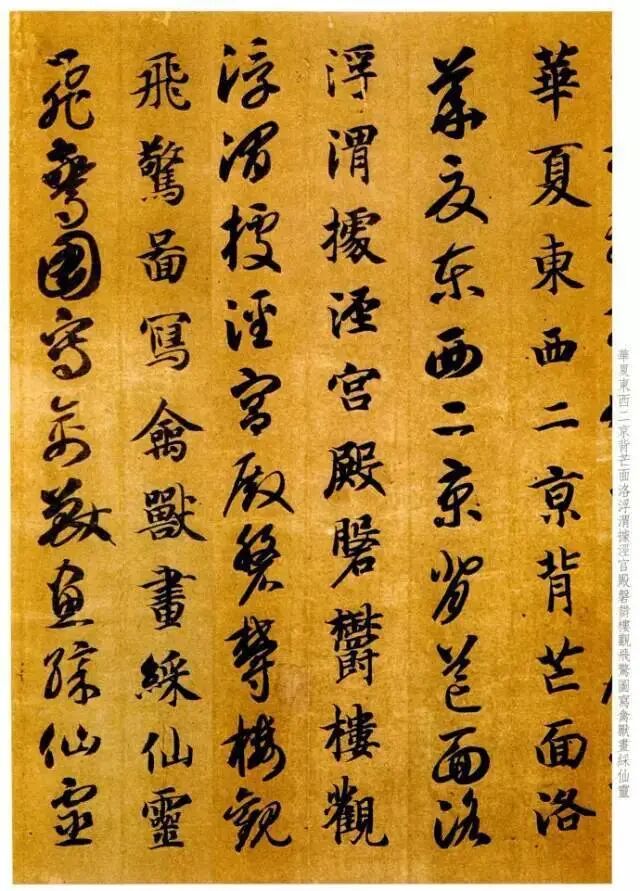 華夏東西二京背芒面洛浮渭據涇宮殿磐鬱樓觀飛驚圖寫禽獸畫綵仙靈
華夏東西二京背芒面洛
華夏東西二京背芒面洛
浮渭據涇宮殿磐鬱樓觀
浮渭據涇宮殿磐鬱樓觀
飛驚圖寫禽獸畫綵仙靈
飛驚圖寫禽獸畫綵仙靈